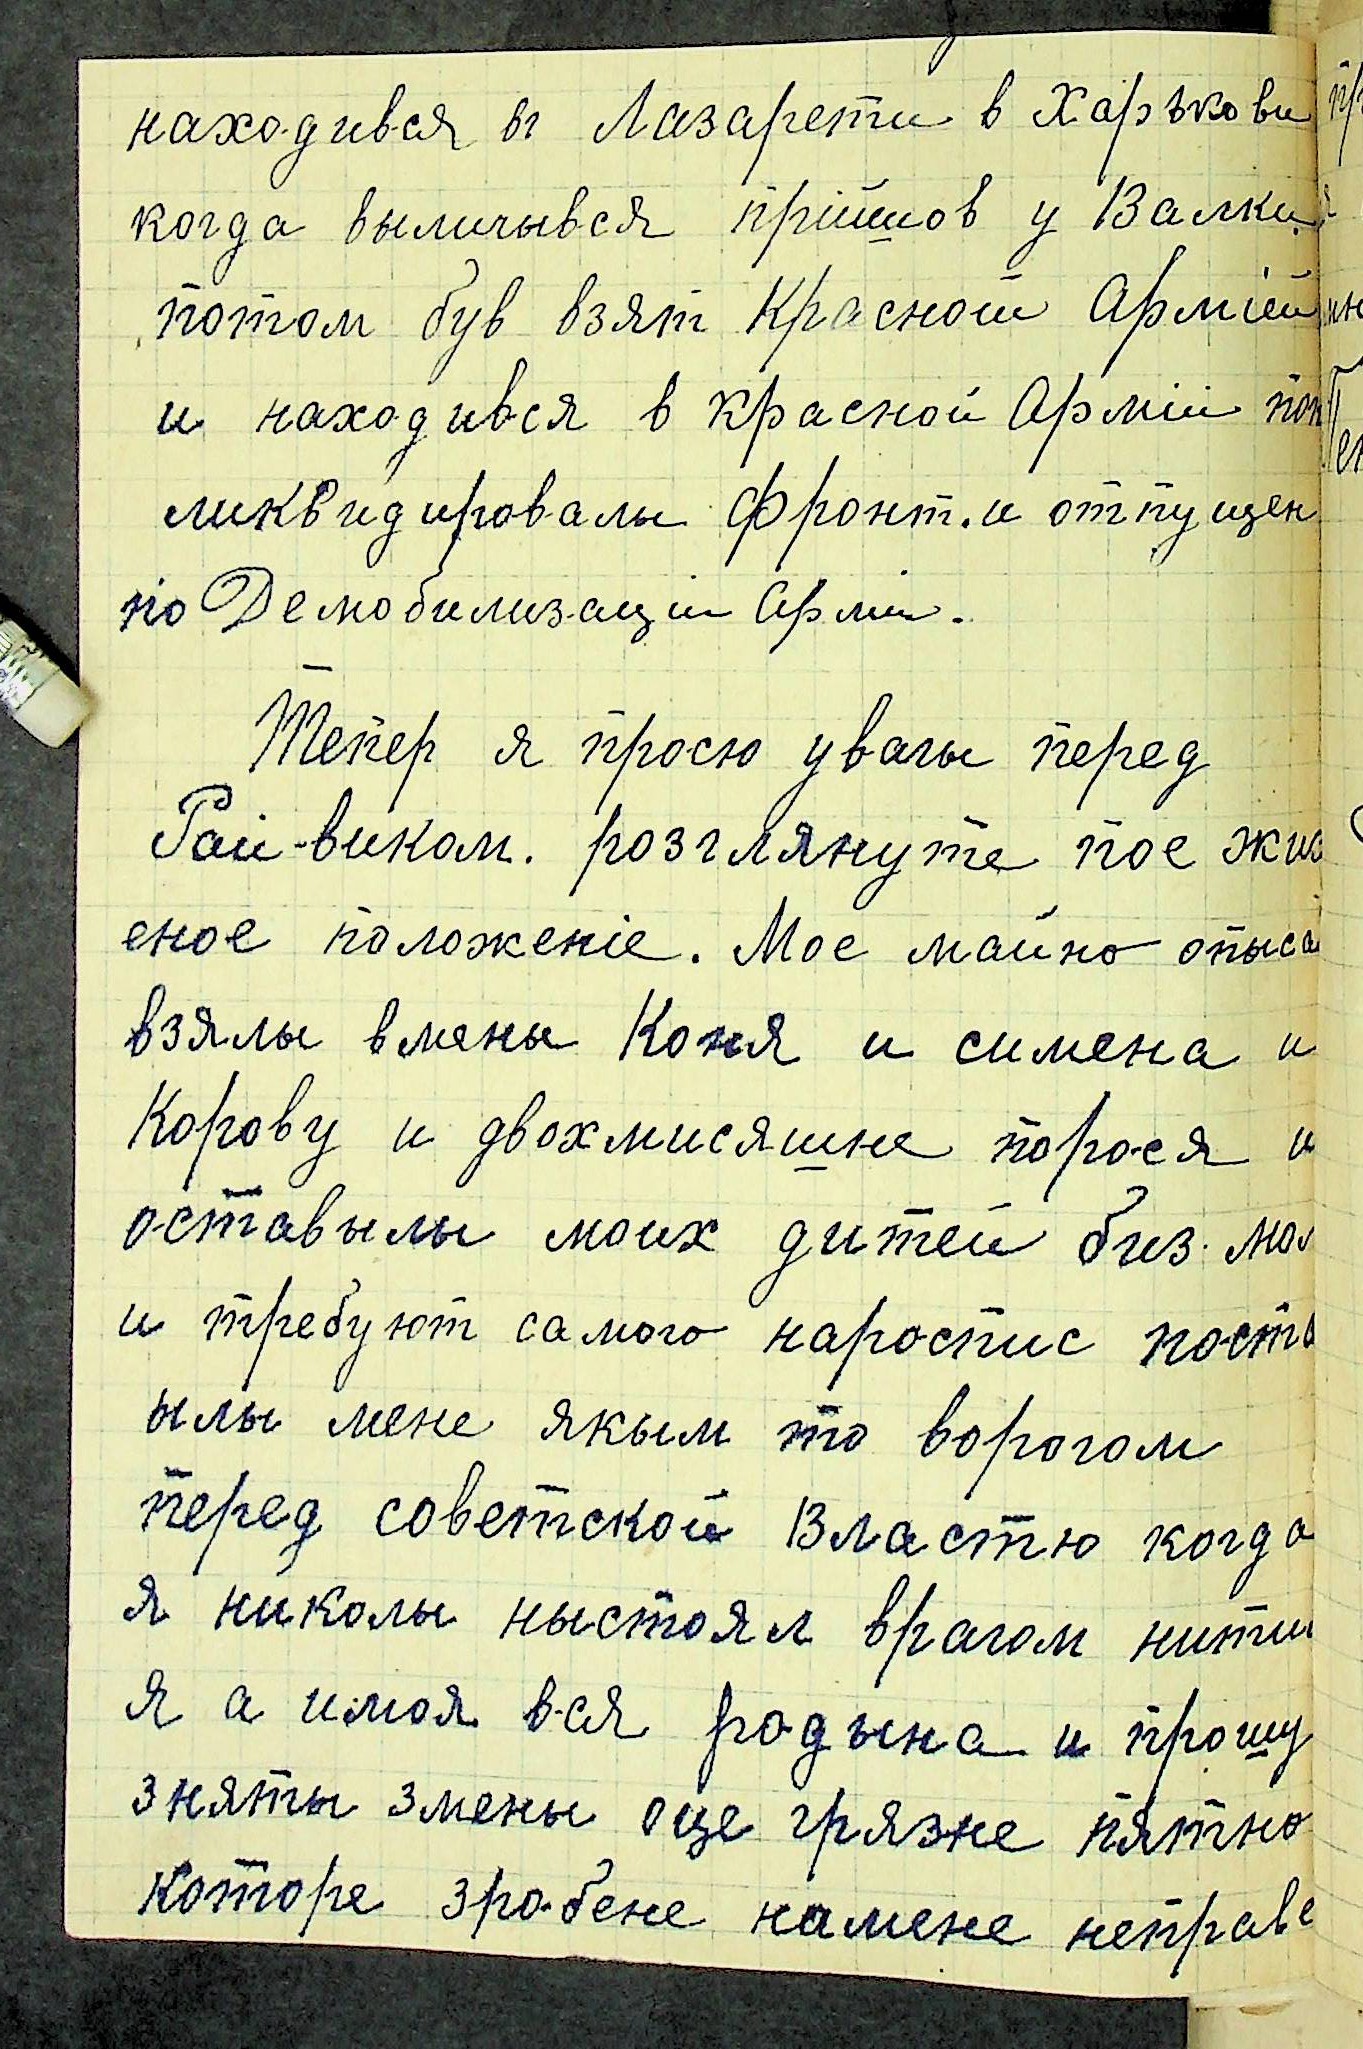 находився в Лазарети в Харькови
когда выличывся прійшов у Валки
потом був взят Красной Армієй
и находився в красной Арміи пок
ликвидировалы Фронт. и отпущен
по Демобилизаціи Арміи.
Тепер я просю увагы перед
Рай-виком. розглянуте мое жиз
еное положеніе. Мое майно опыса
взялы вмены Коня и симена и
Корову и двохмисяшне порося и
оставылы моих дитей биз мол
и требуют самого наростис поста
ылы мене якым то ворогом
перед советской Властю когда
я николы ныстоял врагом нитил
я а имоя вся родына и прошу
зняты змены оце грязне пятно
которе зробене намене неправе